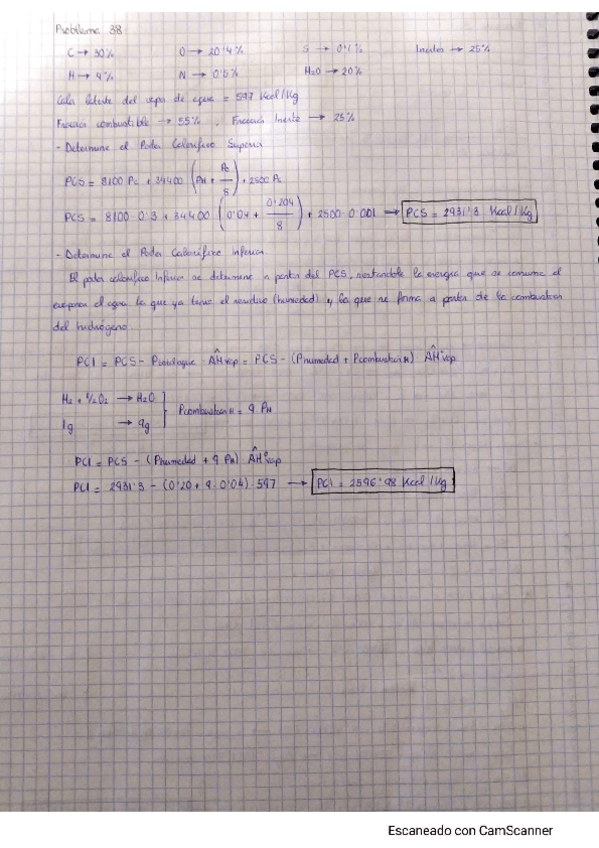 Problema 38
C → 30% O → 20'4% S → 0'1% Inertes → 25%
H → 4% N → 0'5% H2O → 20%
Calor latente del vapor de agua = 597 Kcal/Kg
Fracción combustible → 55% , Fracción Inerte → 25%
- Determine el Poder Calorífico Superior
PCS = 8100 Pc + 34400 (PH + Po/8) + 2500 Ps
PCS = 8100 · 0'3 + 34400 (0'04 + 0'204/8) + 2500 · 0'001 → PCS = 2931'3 Kcal/Kg
- Determine el Poder Calorífico Inferior
El poder calorífico Inferior se determina a partir del PCS, restandole la energía que se consume al
evaporar el agua la que ya tiene el residuo (humedad) y la que se forma a partir de la combustion
del hidrógeno.
PCI = PCS - Ptotal agua ΔĤvap = PCS - (Phumedad + Pcombustion H) ΔĤ°vap
H2 + 1/2 O2 → H2O
1g → 9g Pcombustion H = 9 PH
PCI = PCS - (Phumedad + 9 PH) ΔĤ°vap
PCI = 2931'3 - (0'20 + 9 · 0'04) · 597 → PCI = 2596'98 Kcal/Kg
Escaneado con CamScanner